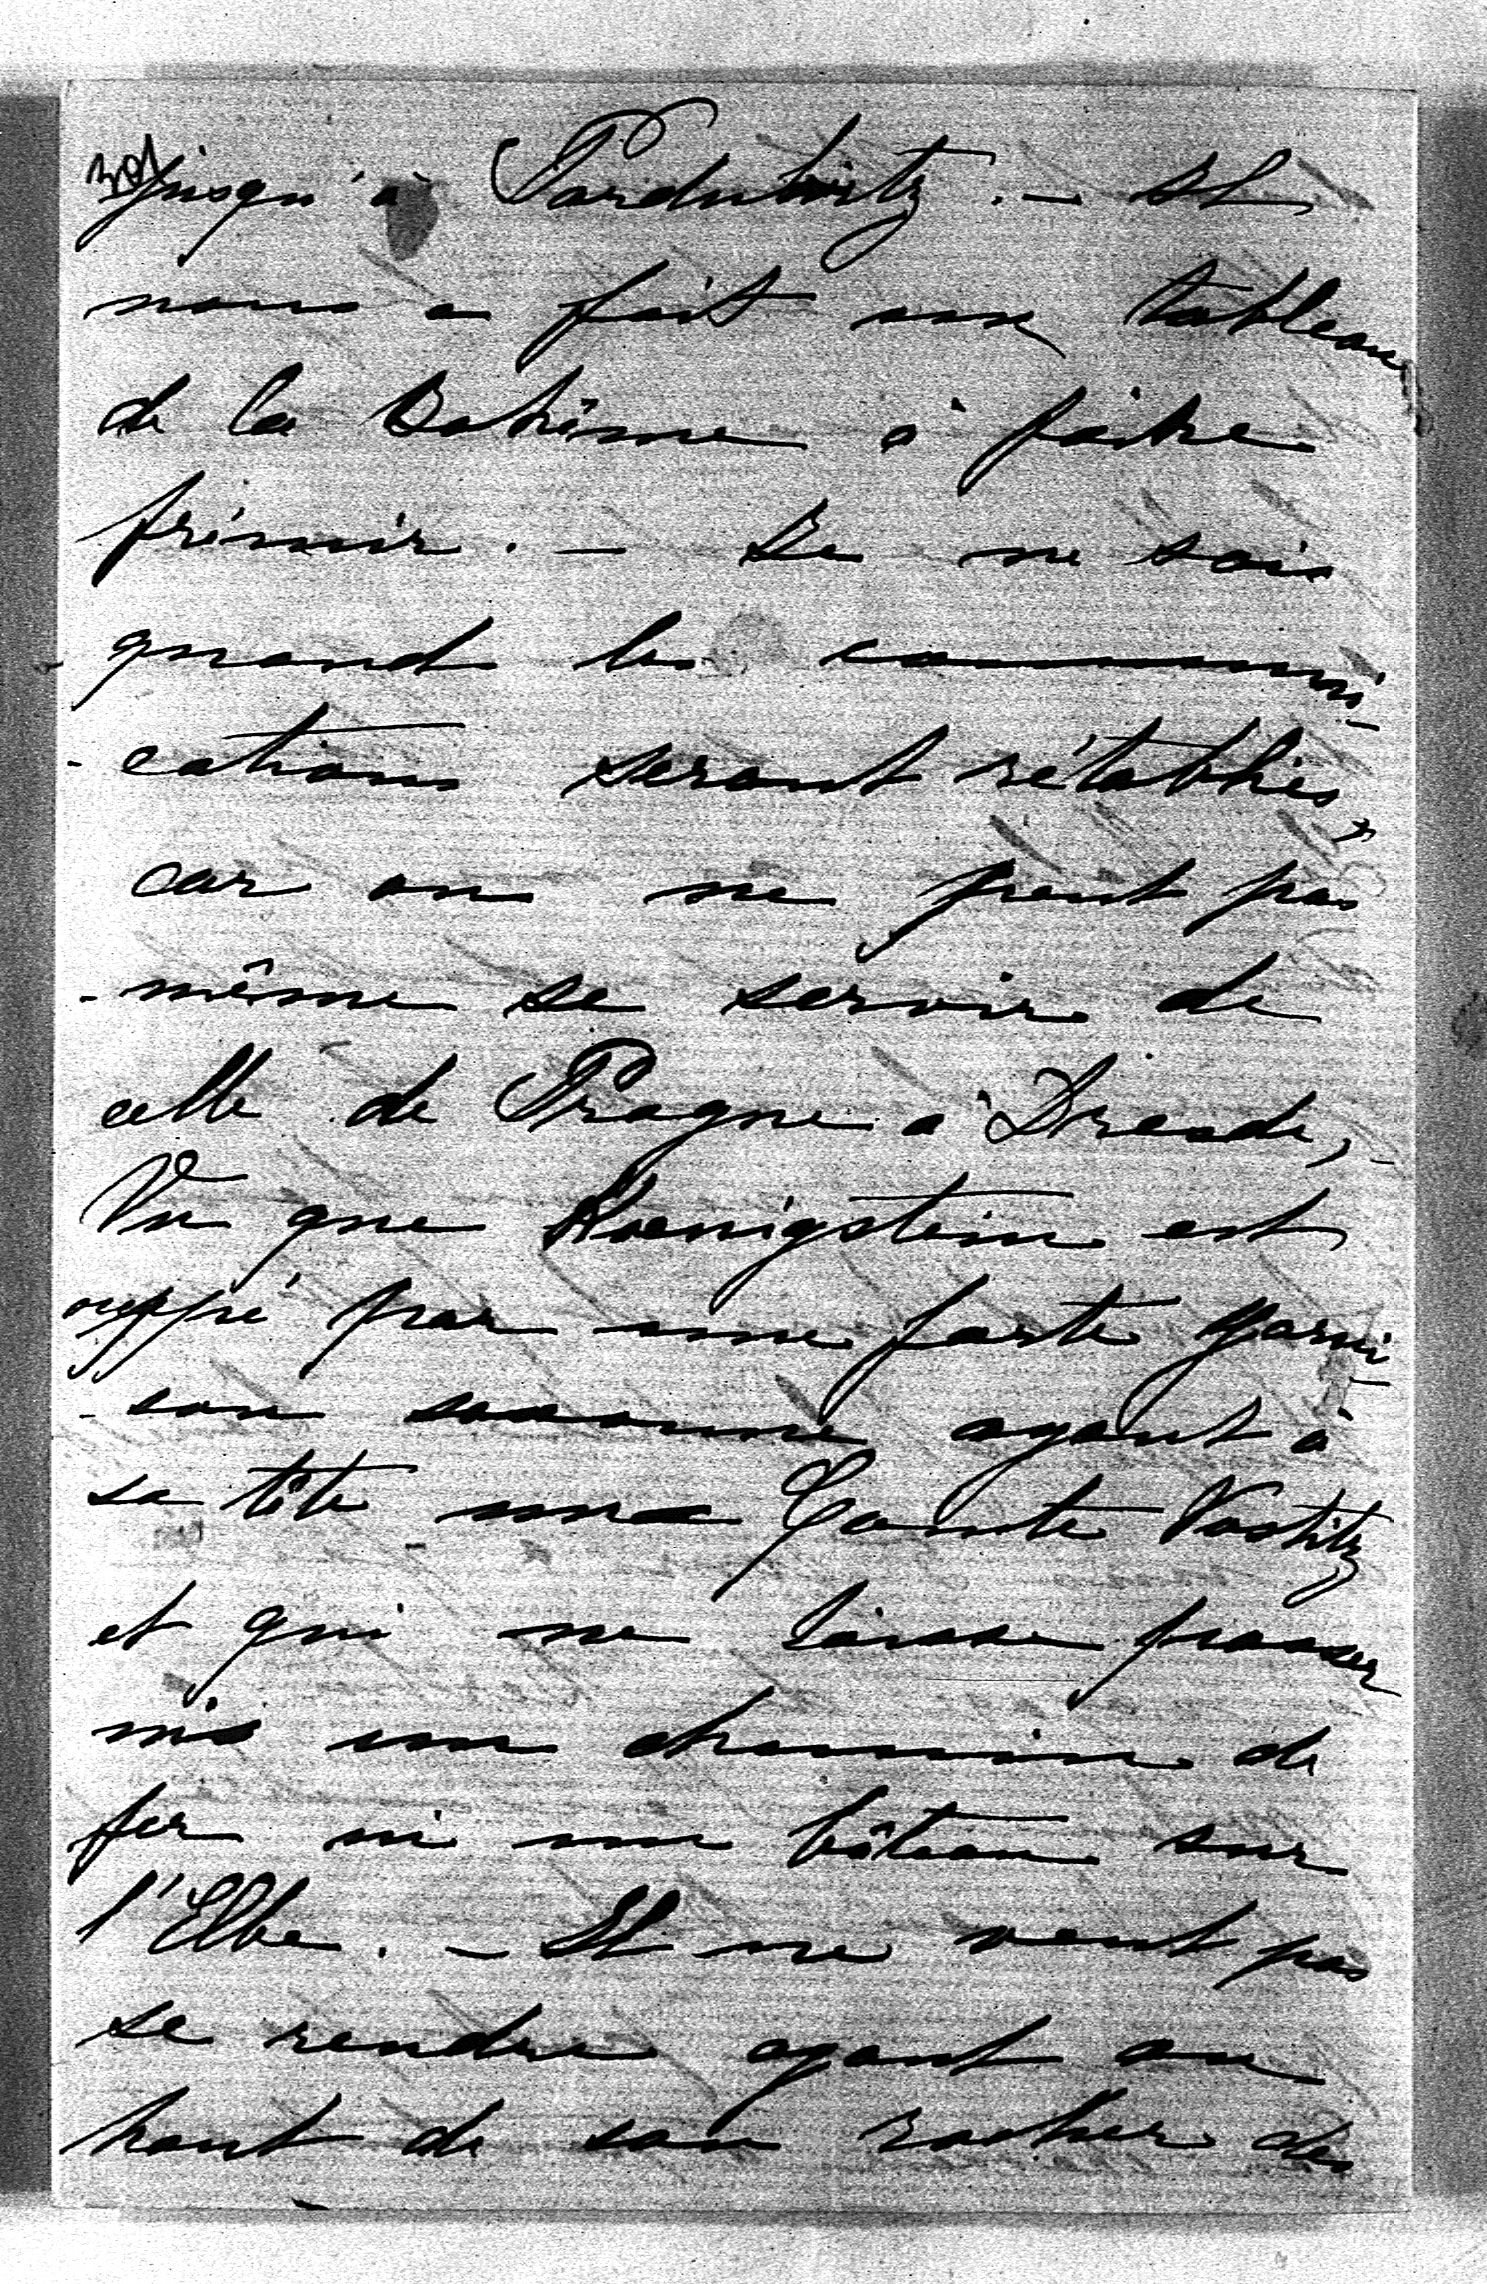 301
jusqu'à Pardubitz. — Il
nous a fait un tableau
de la Bohême à faire
frémir. — Je ne sais
quand les communi-
-cations seront rétablies,
car on ne peut pas
-même se servir de
celle de Prague à Dresde,
Vu que Koenigstein est
ouppé par une forte garni-
-son saxonne ayant à
sa tête un Comte Nostitz
et qui ne laisse passer
ni un chemin de
fer ni un bâteau sur
l'Elbe. — Il ne veut pas
se rendre ayant au
haut de son rocher des